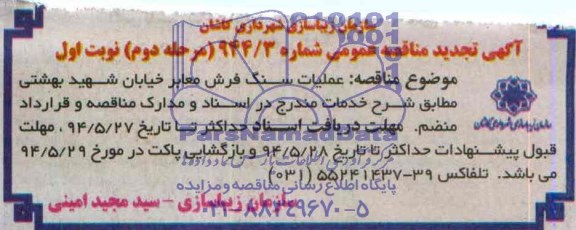 سازمان زیباسازی شهرداری کاشان
آگهی تجدید مناقصه عمومی شماره ۹۴۴/۳ (مرحله دوم) نوبت اول
موضوع مناقصه: عملیات سنگ فرش معابر خیابان شهید بهشتی
مطابق شرح خدمات مندرج در اسناد و مدارک مناقصه و قرارداد
منضم. مهلت دریافت اسناد حداکثر تا تاریخ ۹۴/۵/۲۷ ، مهلت
قبول پیشنهادات حداکثر تا تاریخ ۹۴/۵/۲۸ و بازگشایی پاکت در مورخ ۹۴/۵/۲۹
می باشد. تلفاکس ۳۹-۵۵۲۴۱۴۳۷ (۰۳۱)
سازمان زیباسازی - سید مجید امینی
سازمان زیباسازی شهرداری کاشان
ParsNamadData
پایگاه اطلاع رسانی مناقصه و مزایده
۰۲۱-۸۸۳۴۹۶۷۰-۵